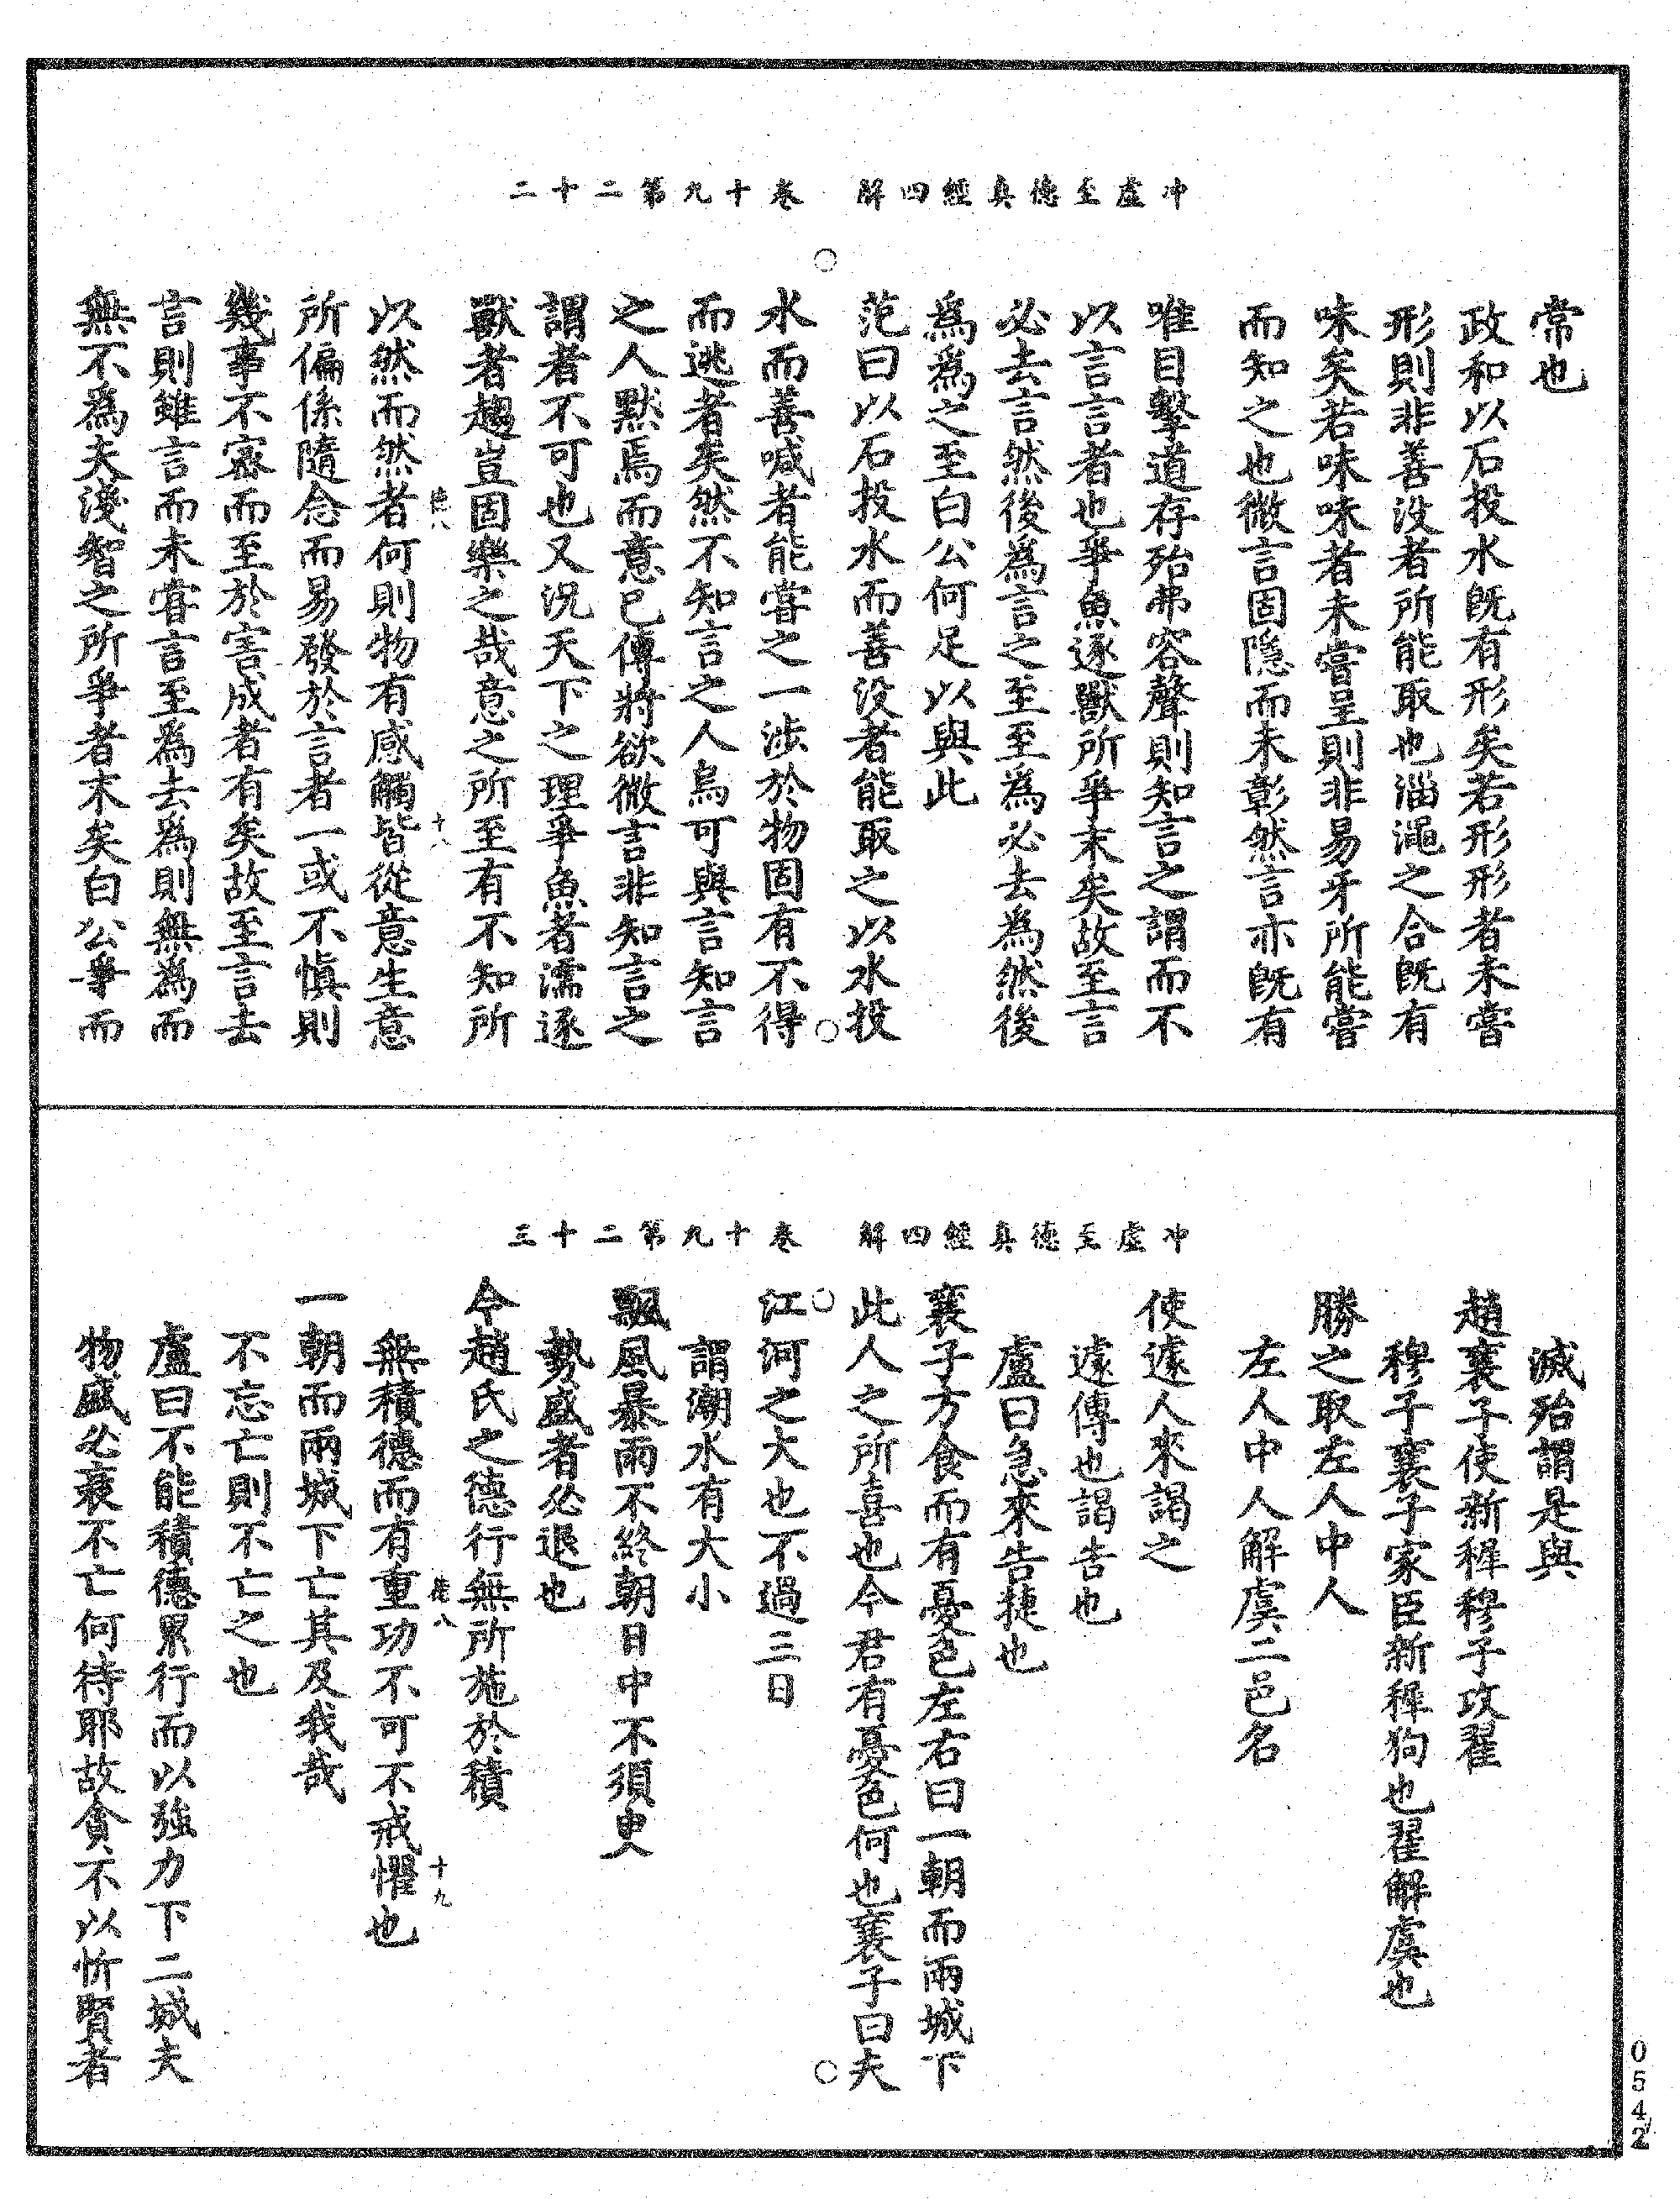 冲虛至德真經四解　卷十九第二十二
常也
政和以石投水旣有形矣若形形者未嘗
形則非善沒者所能取也淄澠之合旣有
味矣若味味者未嘗呈則非易牙所能嘗
而知之也微言固隱而未彰然言亦旣有
唯目擊道存殆弗容聲則知言之謂而不
以言言者也爭魚逐獸所爭末矣故至言
必去言然後爲言之至至爲必去爲然後
爲爲之至白公何足以與此
范曰以石投水而善沒者能取之以水投
水而善喊者能嘗之一涉於物固有不得
而逃者矣然不知言之人烏可與言知言
之人默焉而意已傳將欲微言非知言之
謂者不可也又況天下之理爭魚者濡逐
獸者趨豈固樂之哉意之所至有不知所
以然而然者何則物有感觸皆從意生意
德八　十八
所偏係隨念而易發於言者一或不愼則
幾事不密而至於害成者有矣故至言去
言則雖言而未嘗言至爲去爲則無爲而
無不爲夫淺智之所爭者末矣白公爭而
冲虛至德真經四解　卷十九第二十三
滅殆謂是與
趙襄子使新穉穆子攻翟
穆子襄子家臣新穉狗也翟鮮虞也
勝之取左人中人
左人中人鮮虞二邑名
使遽人來謁之
遽傳也謁告也
盧曰急來告捷也
襄子方食而有憂色左右曰一朝而兩城下
此人之所喜也今君有憂色何也襄子曰夫
江河之大也不過三日
謂潮水有大小
飄風暴雨不終朝日中不須臾
勢盛者必退也
今趙氏之德行無所施於積
無積德而有重功不可不戒懼也
德八　十九
一朝而兩城下亡其及我哉
不忘亡則不亡之也
盧曰不能積德累行而以強力下二城夫
物盛必衰不亡何待耶故貪不以忻賢者
0542